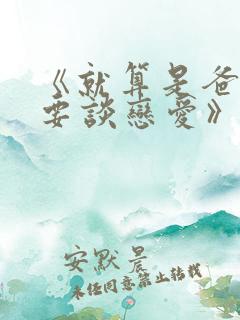 《就算是爸
要談戀愛》
安默晨
未经同意禁止转载